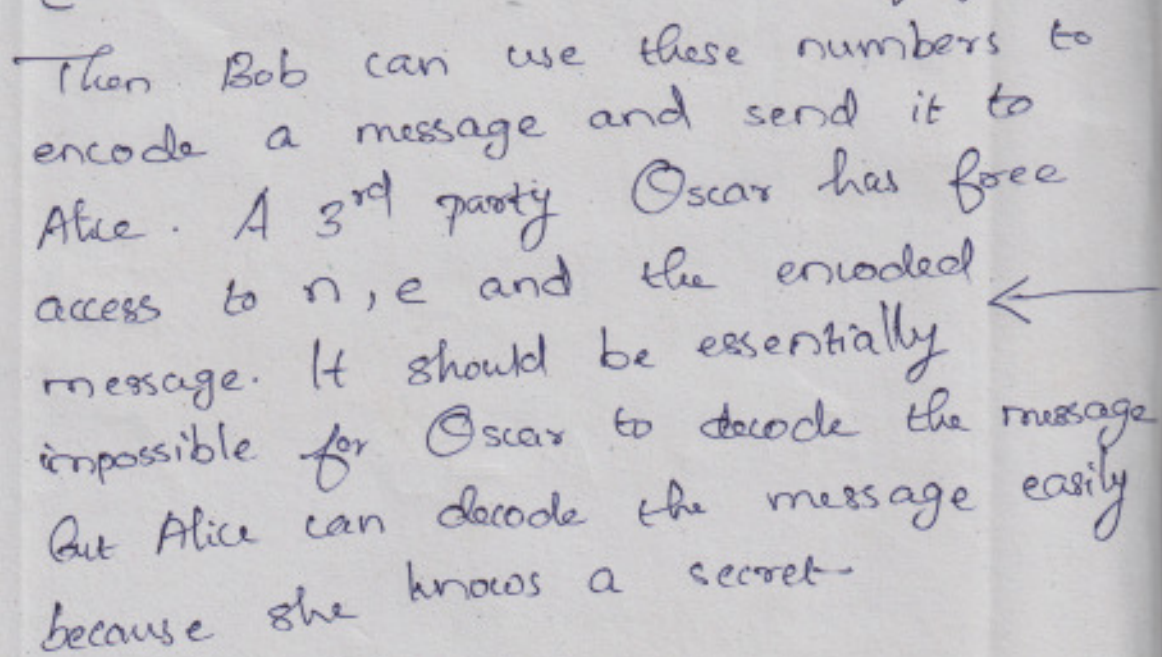 Then Bob can use these numbers to
encode a message and send it to
Alice. A 3rd party Oscar has free
access to n, e and the encoded
message. It should be essentially
impossible for Oscar to decode the message
But Alice can decode the message easily
because she knows a secret